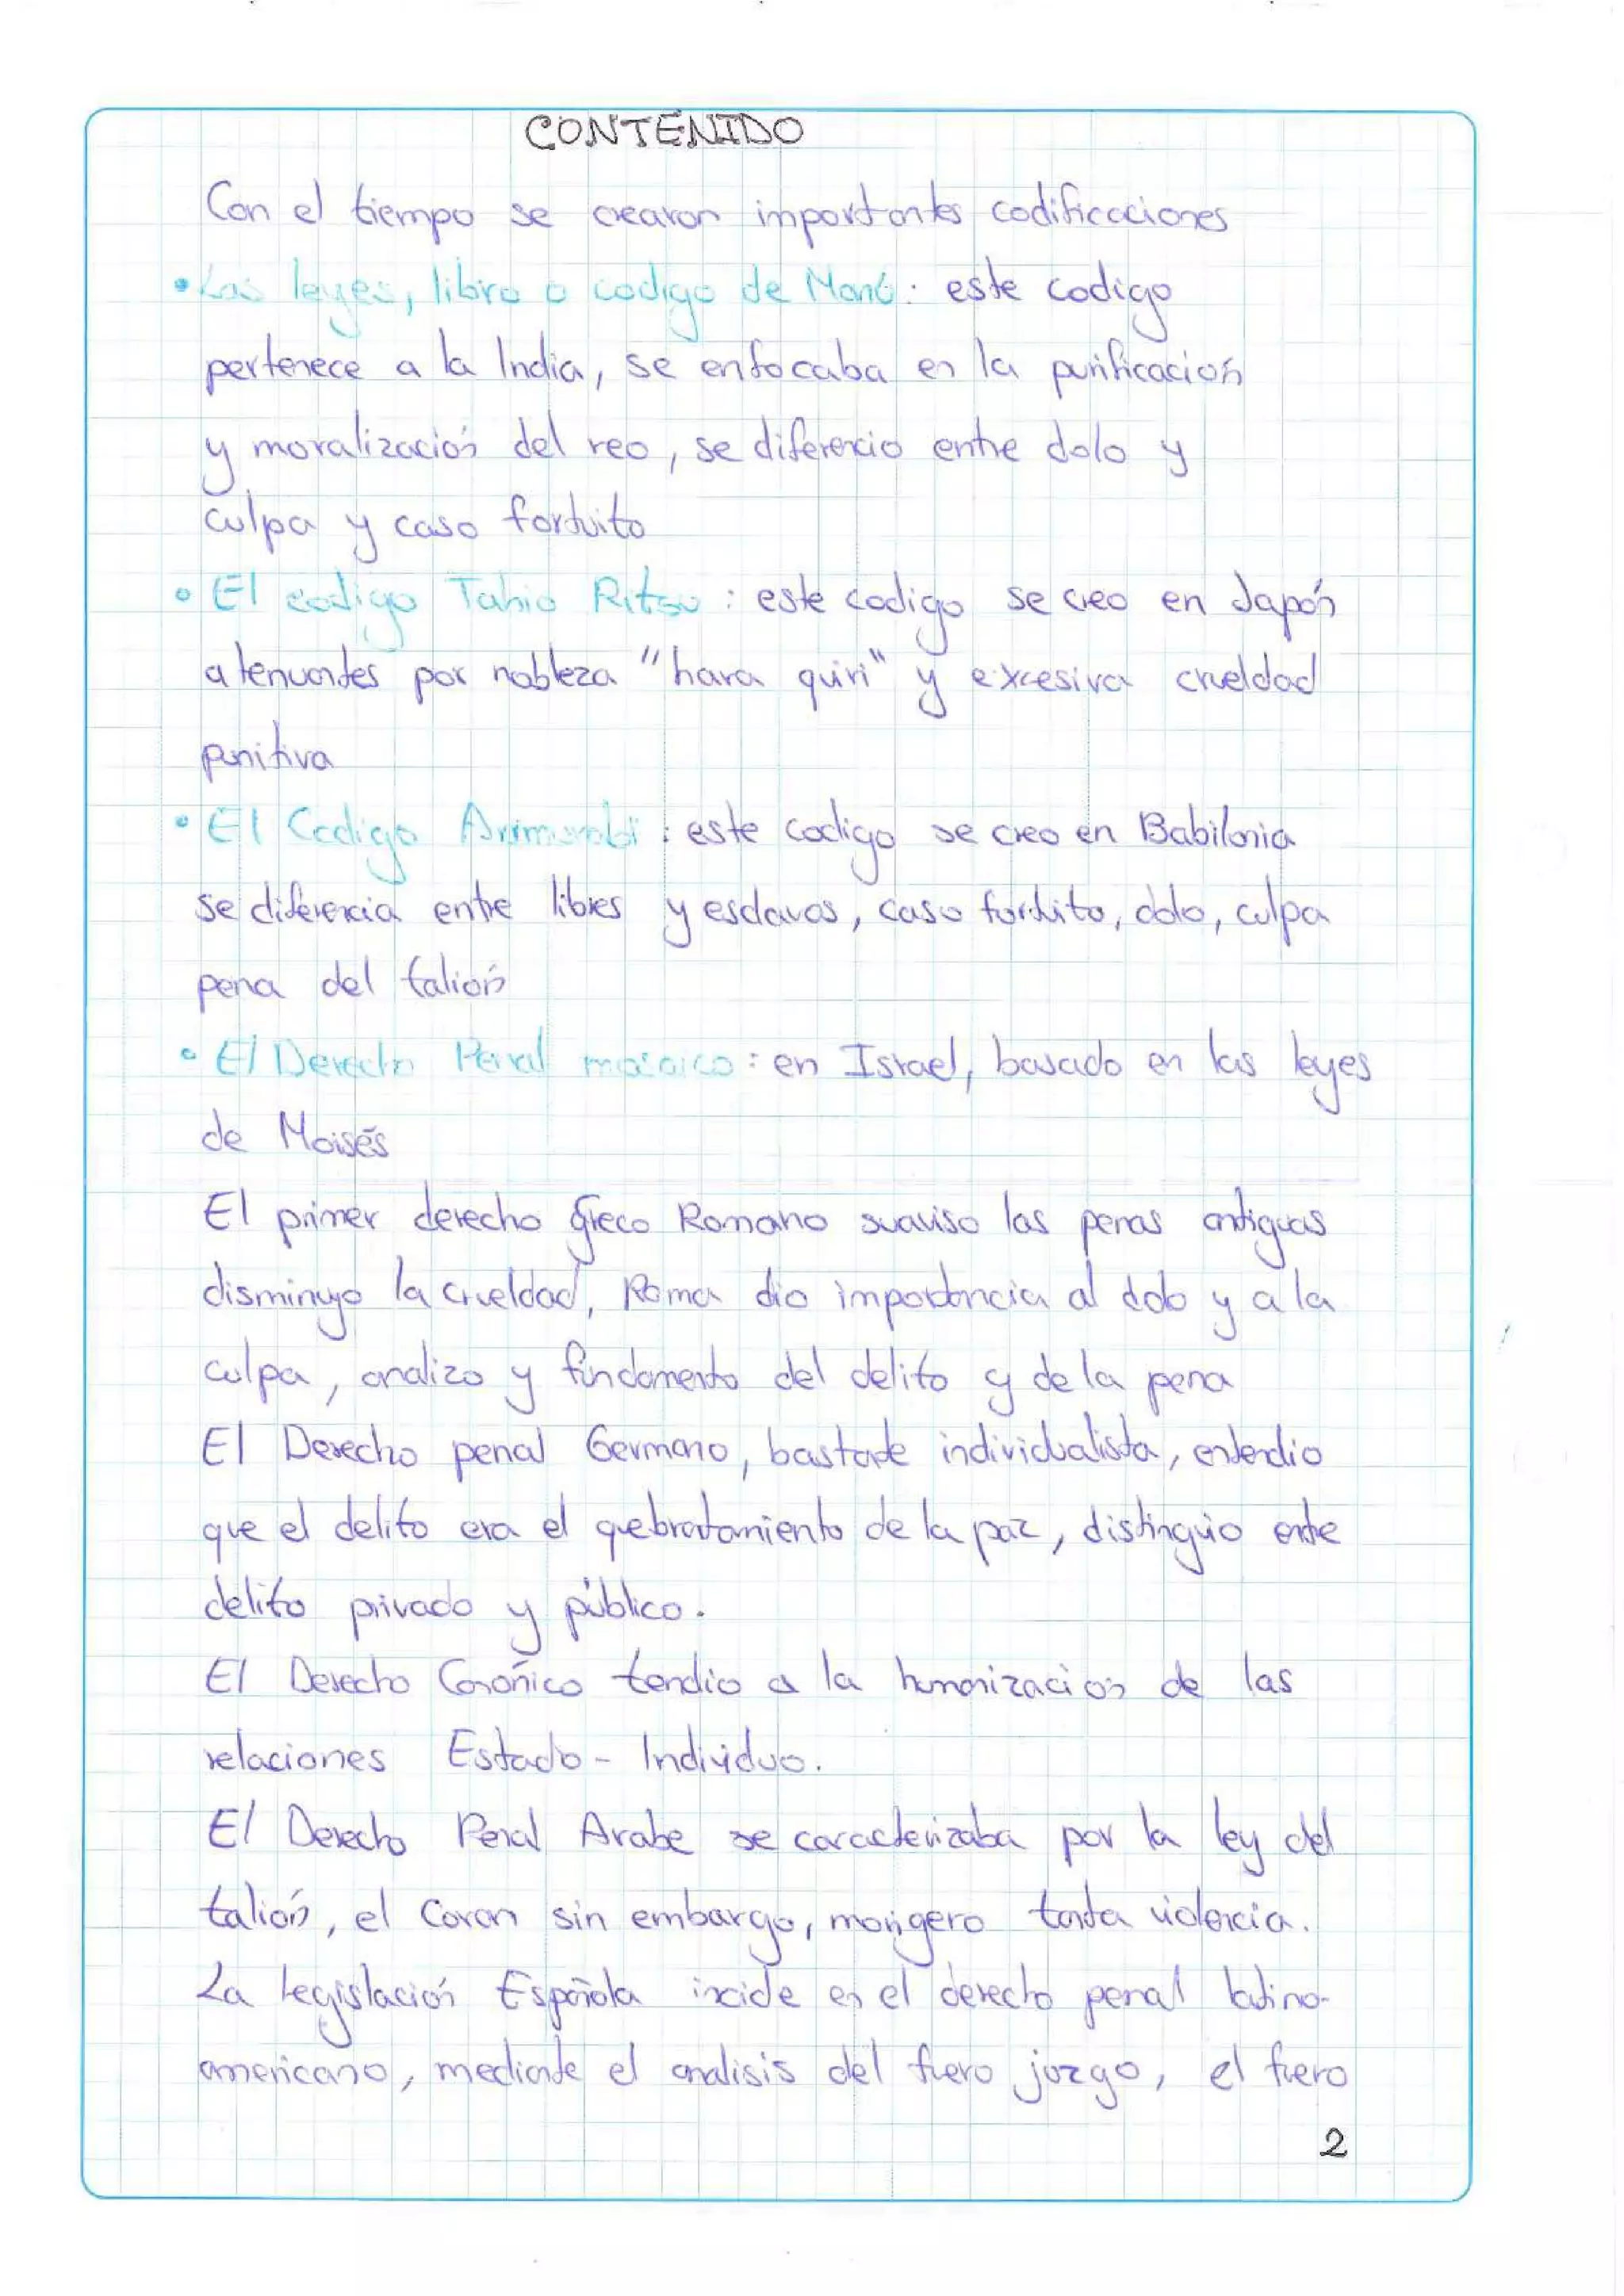 CONTENIDO
Con el tiempo se crearon importantes codificaciones
• Las leyes, libro o codigo de Manú: este codigo
pertenece a la India, se enfocaba en la purificación
y moralización del reo, se diferencio entre dolo y
culpa y caso fortuito
• El codigo Tahio Ritsu: este codigo se creo en Japón
atenuantes por nobleza "hara quiri" y excesiva crueldad
punitiva
• El Codigo : este codigo se creo en Babilonia
se diferencia entre libres y esclavos, caso fortuito, dolo, culpa
pena del talión
• El Derecho Penal mosaico: en Israel, basado en las leyes
de Moisés
El primer derecho Greco Romano suaviso las penas antiguas
disminuyo la crueldad, Roma dio importancia al dolo y a la
culpa, analizo y fundamento del delito y de la pena
El Derecho penal Germano, bastante individualista, entendio
que el delito era el quebratamiento de la paz, distinguio entre
delito privado y público.
El Derecho Canónico tendio a la humanización de las
relaciones Estado - Individuo.
El Derecho Penal Arabe se caracterizaba por la ley del
talión, el Coran sin embargo, morigero tanta violencia.
La legislación Española incide en el derecho penal latino-
americano, mediante el analisis del fuero juzgo, el fuero
2